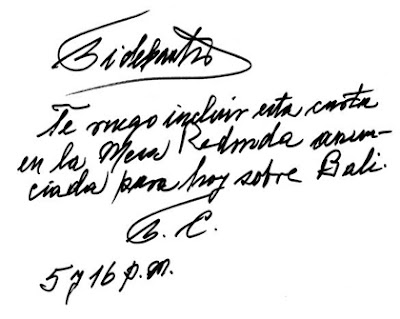 Fidel Castro
Te ruego incluir esta carta
en la Mesa Redonda anun-
ciada para hoy sobre Bali.
F. C.
5 y 16 p.m.